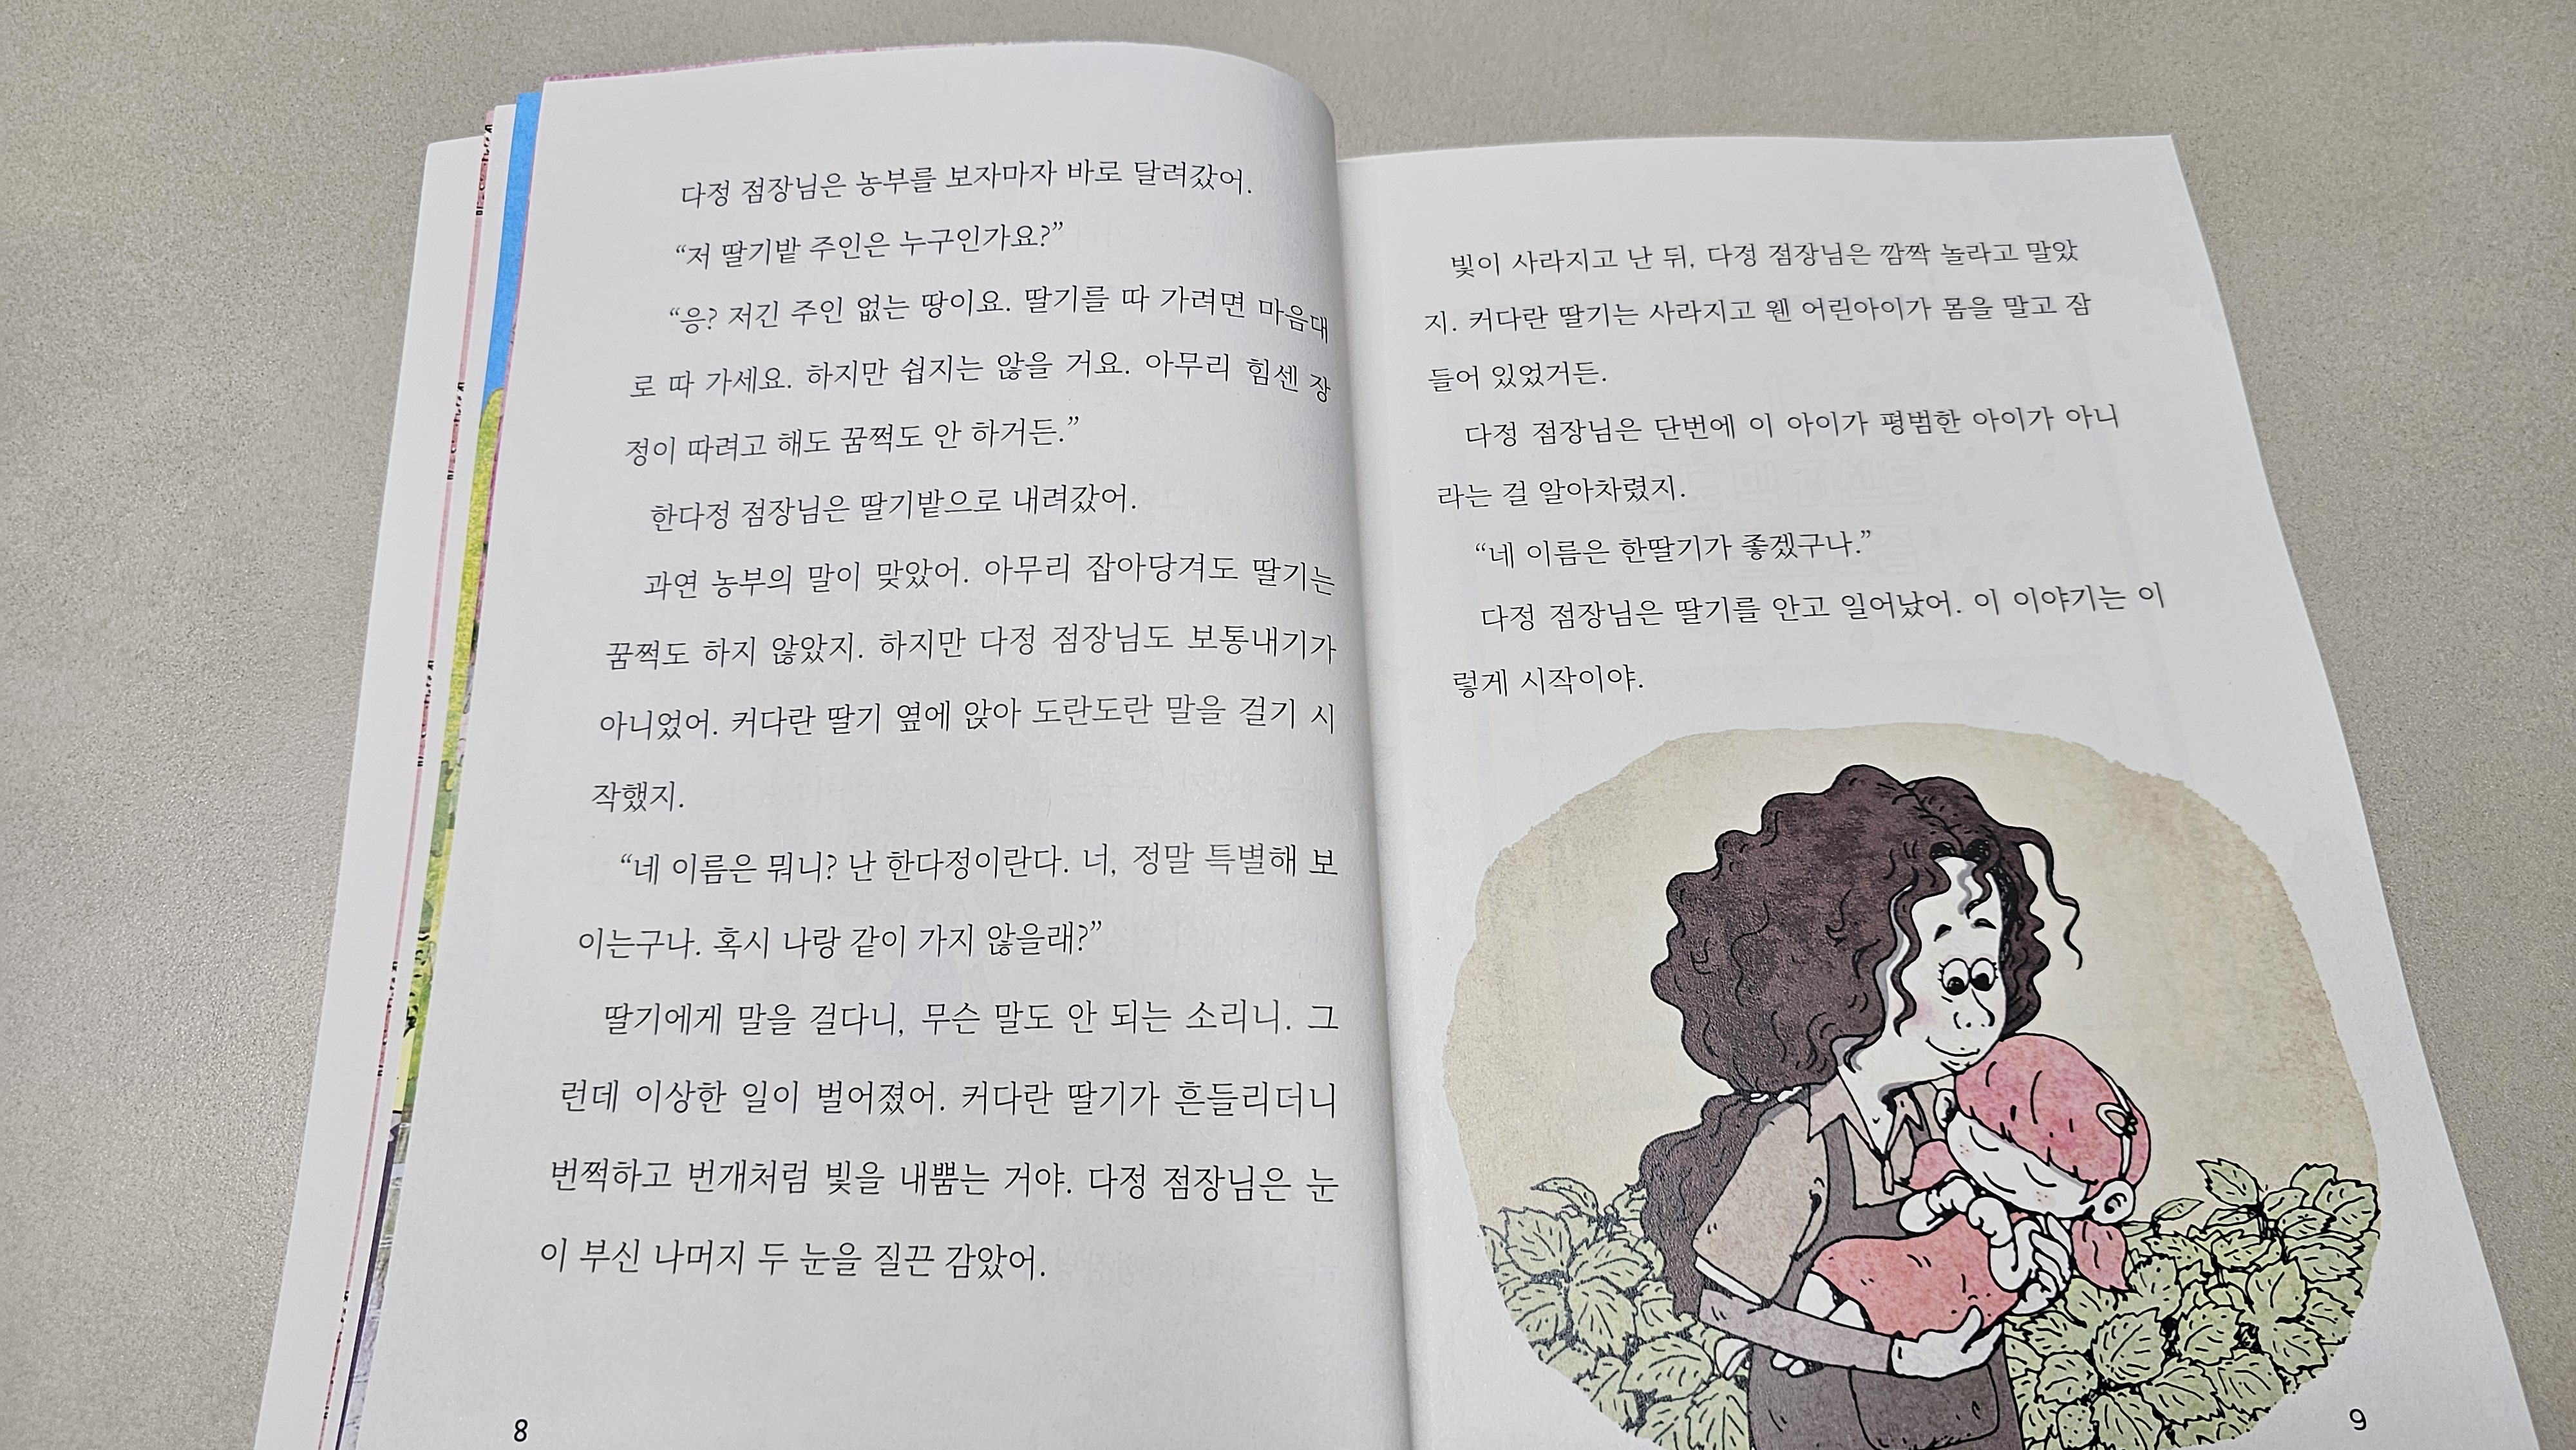 다정 점장님은 농부를 보자마자 바로 달려갔어.
“저 딸기밭 주인은 누구인가요?”
“응? 저긴 주인 없는 땅이요. 딸기를 따 가려면 마음대
로 따 가세요. 하지만 쉽지는 않을 거요. 아무리 힘센 장
정이 따려고 해도 꿈쩍도 안 하거든.”
한다정 점장님은 딸기밭으로 내려갔어.
과연 농부의 말이 맞았어. 아무리 잡아당겨도 딸기는
꿈쩍도 하지 않았지. 하지만 다정 점장님도 보통내기가
아니었어. 커다란 딸기 옆에 앉아 도란도란 말을 걸기 시
작했지.
“네 이름은 뭐니? 난 한다정이란다. 너, 정말 특별해 보
이는구나. 혹시 나랑 같이 가지 않을래?”
딸기에게 말을 걸다니, 무슨 말도 안 되는 소리니. 그
런데 이상한 일이 벌어졌어. 커다란 딸기가 흔들리더니
번쩍하고 번개처럼 빛을 내뿜는 거야. 다정 점장님은 눈
이 부신 나머지 두 눈을 질끈 감았어.
8
빛이 사라지고 난 뒤, 다정 점장님은 깜짝 놀라고 말았
지. 커다란 딸기는 사라지고 웬 어린아이가 몸을 말고 잠
들어 있었거든.
다정 점장님은 단번에 이 아이가 평범한 아이가 아니
라는 걸 알아차렸지.
“네 이름은 한딸기가 좋겠구나.”
다정 점장님은 딸기를 안고 일어났어. 이 이야기는 이
렇게 시작이야.
9